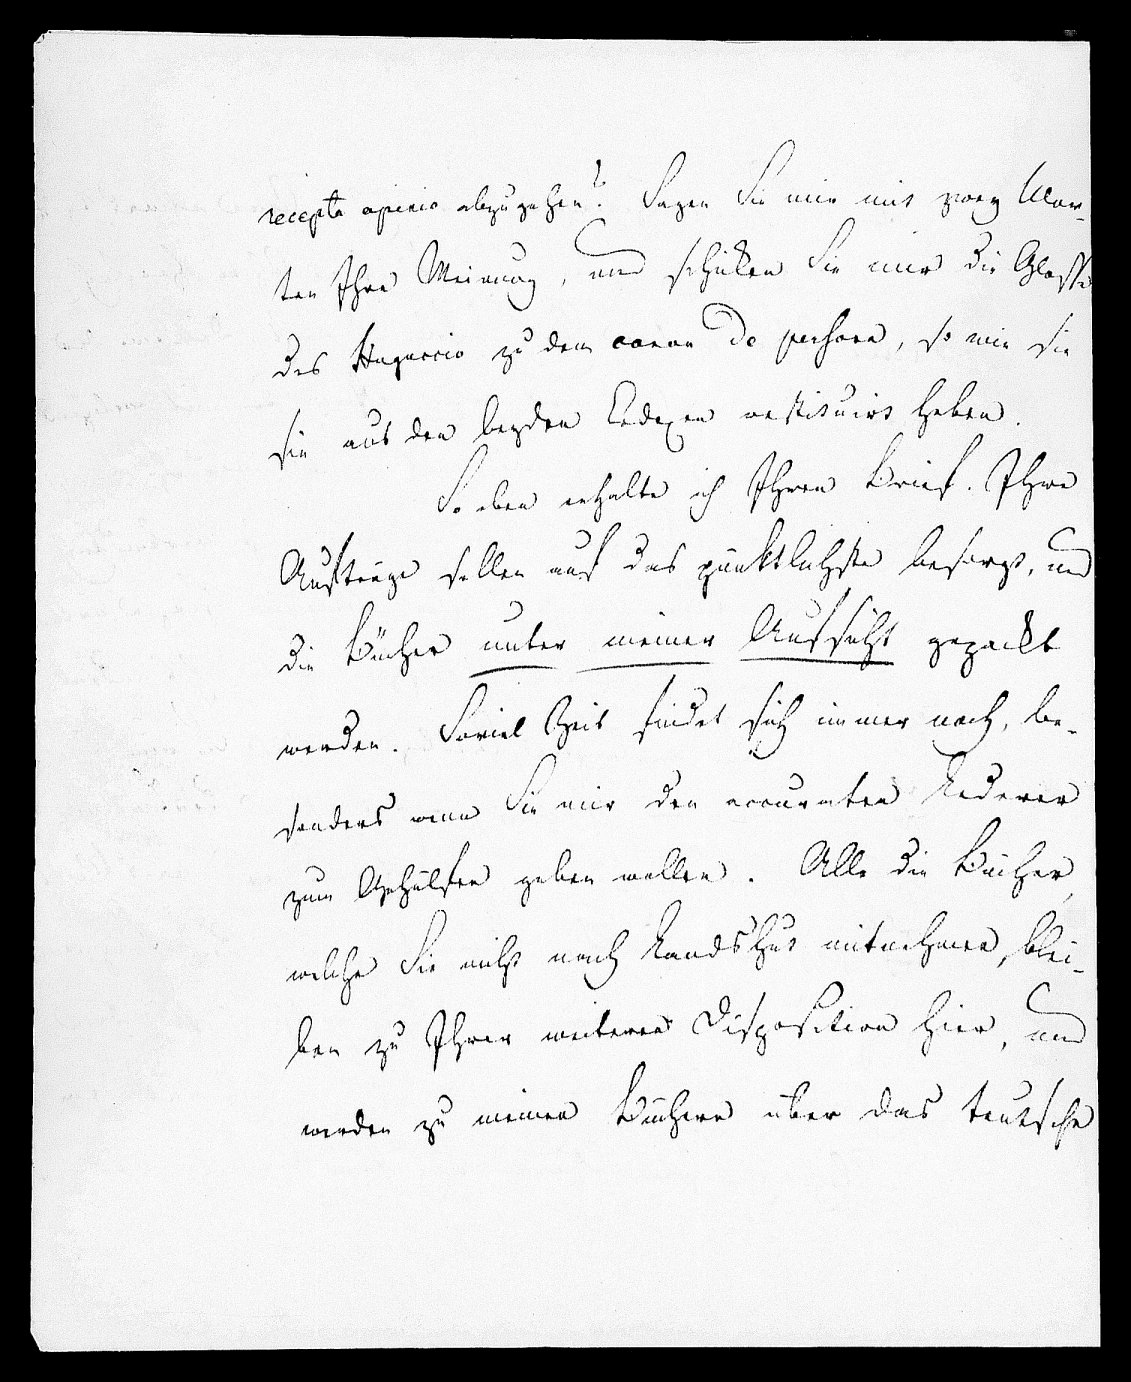 recepta opinio abzugehen? Sagen Sie mir mit zwey Wor-
ten Ihre Meinung, und schicken Sie mir die Glosse
des Huguccio zu dem canon de persona, so wie sie
sie aus den beyden Codexen restituirt haben.
So eben erhalte ich Ihren Brief. Ihre
Aufträge sollen auf das pünktlichste besorgt, und
die Bücher unter meiner Aufsicht gepackt
werden. Soviel Zeit findet sich immer noch, be-
sonders wenn Sie mir den accuraten Lederer
zum Gehülfen geben wollen. Alle die Bücher,
welche Sie nicht nach Landshut mitnehmen, blei-
ben zu Ihrer weiteren Disposition hier, und
werden zu meinen Büchern über das teutsche